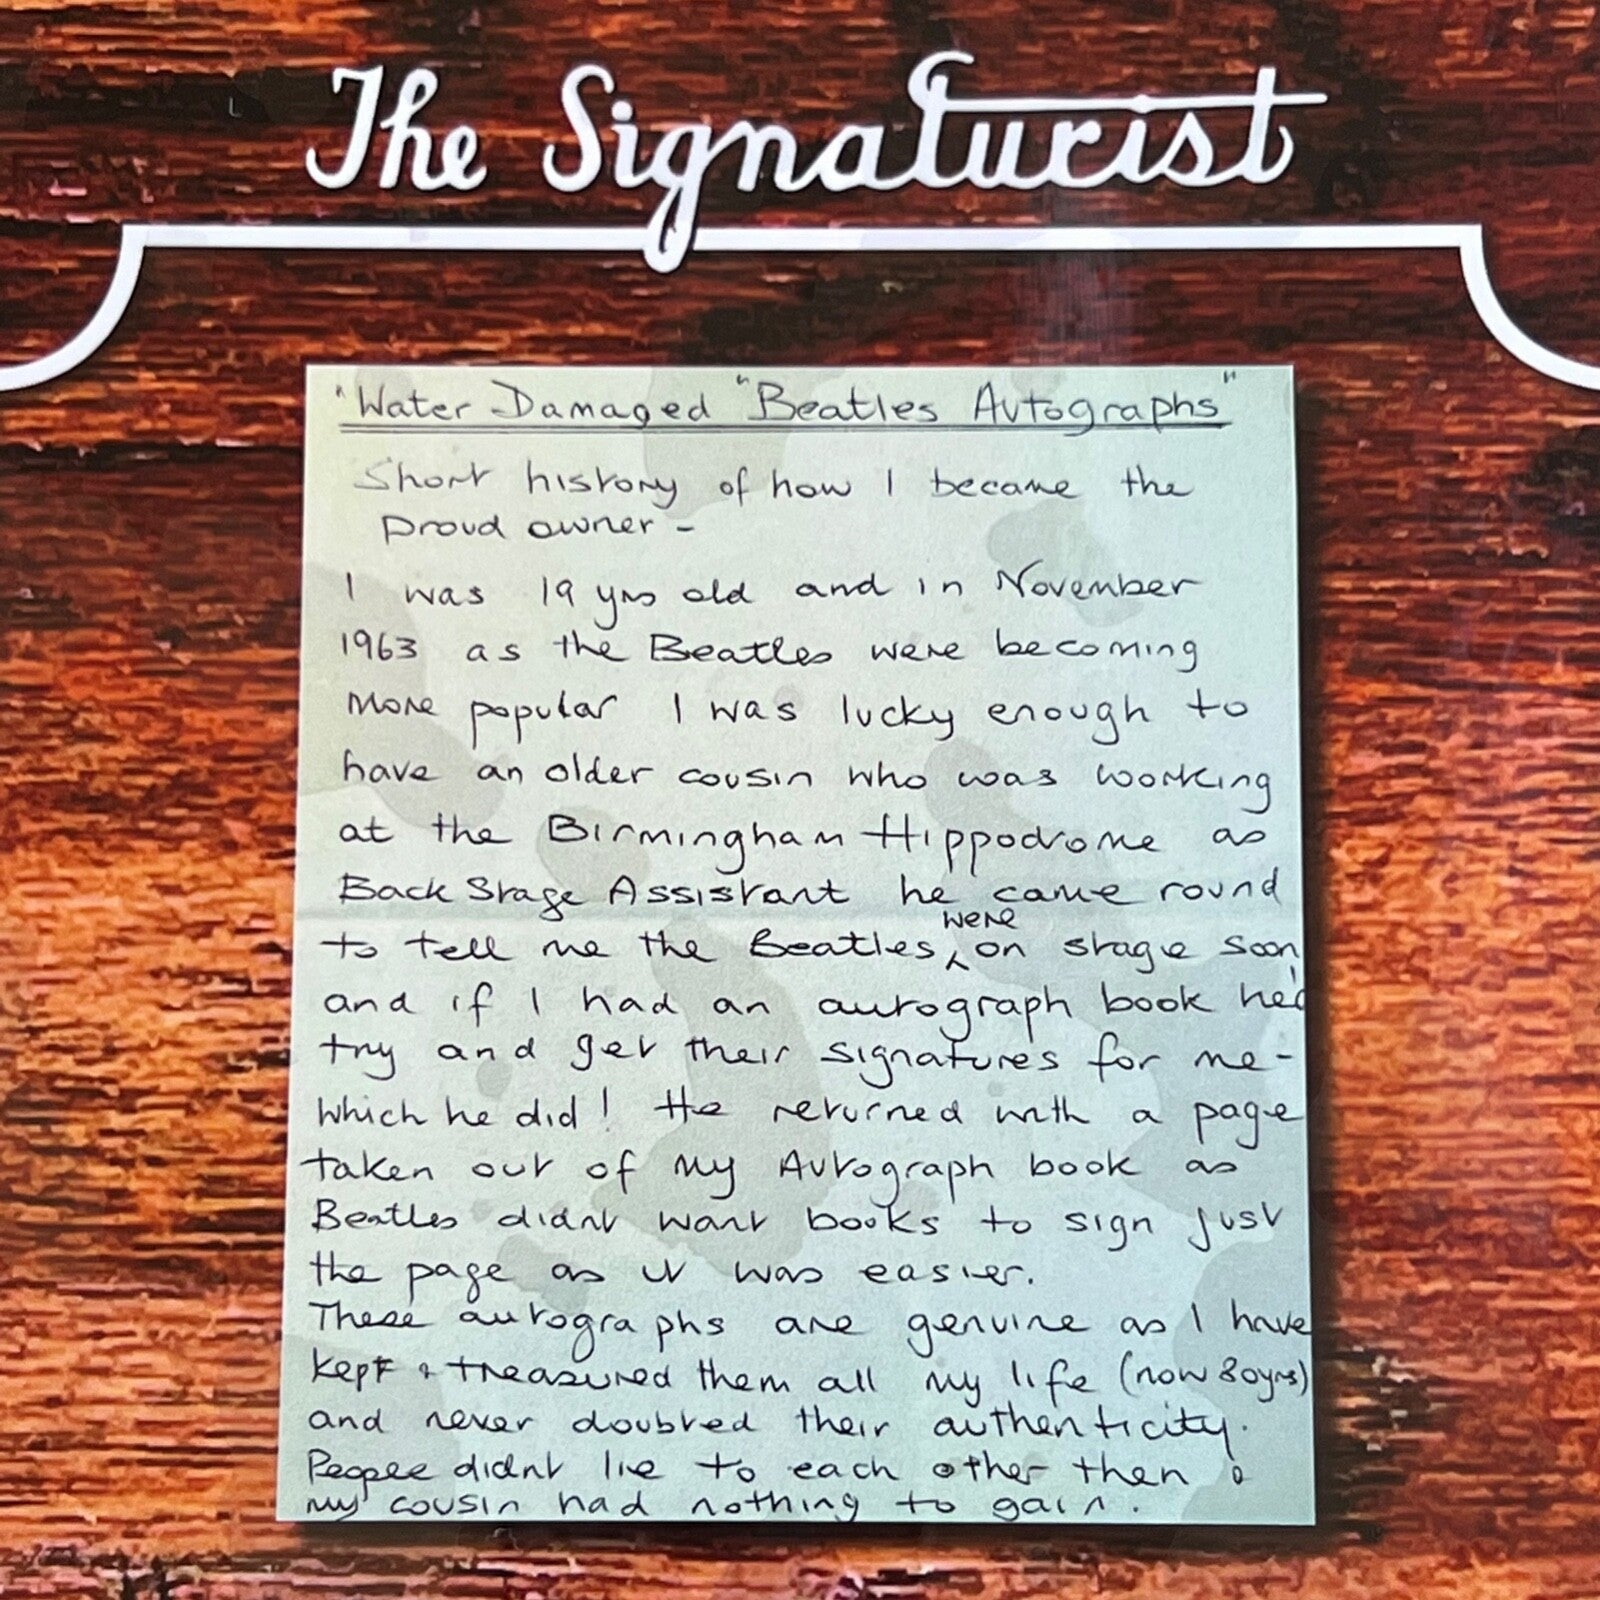 The Signaturist
"Water Damaged "Beatles Autographs"
Short history of how I became the
proud owner -
I was 19 yrs old and in November
1963 as the Beatles were becoming
more popular I was lucky enough to
have an older cousin who was working
at the Birmingham Hippodrome as
Back Stage Assistant he came round
to tell me the Beatles were on stage soon
and if I had an autograph book he'd
try and get their signatures for me -
which he did! He returned with a page
taken out of my Autograph book as
Beatles didnt want books to sign just
the page as it was easier.
These autographs are genuine as I have
kept & treasured them all my life (now 80yrs)
and never doubted their authenticity.
People didnt lie to each other then &
my cousin had nothing to gain.